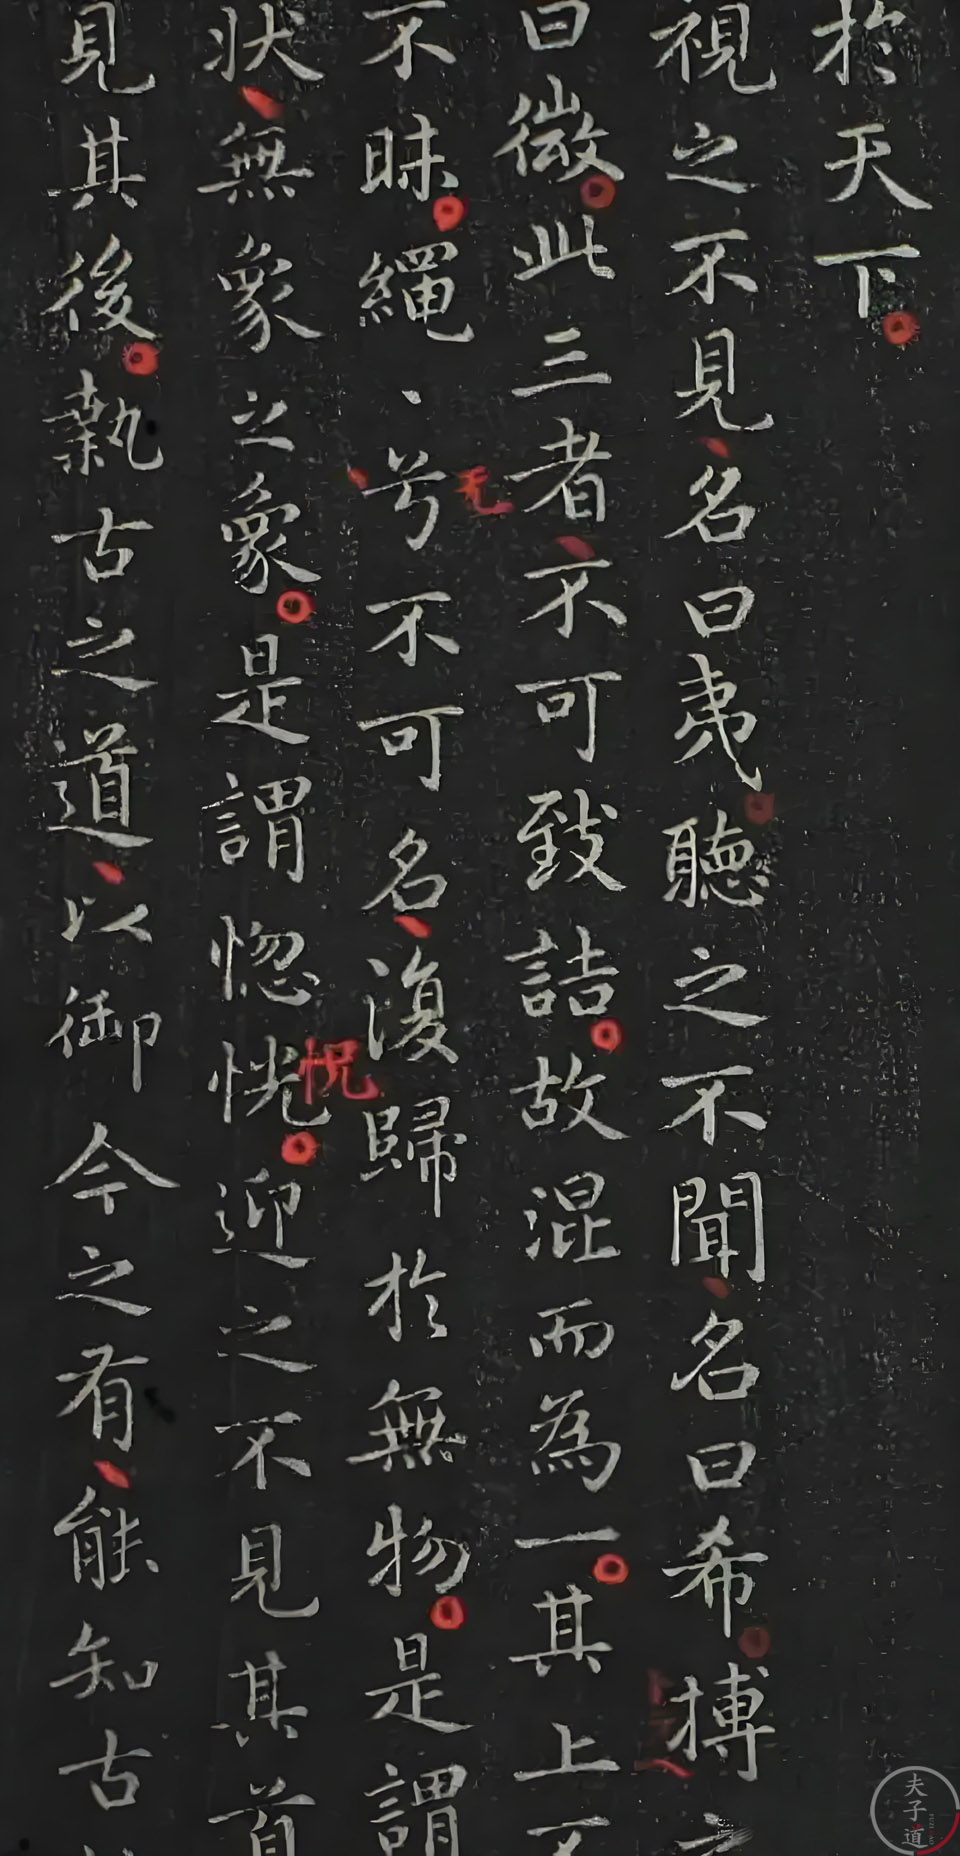 於天下
視之不見名曰夷聽之不聞名曰希搏之
曰微此三者不可致詰故混而為一其上不
不昧繩、兮不可名復歸於無物是謂
无
状無象之象是謂惚恍迎之不見其首
怳
見其後執古之道以御今之有能知古
夫子道